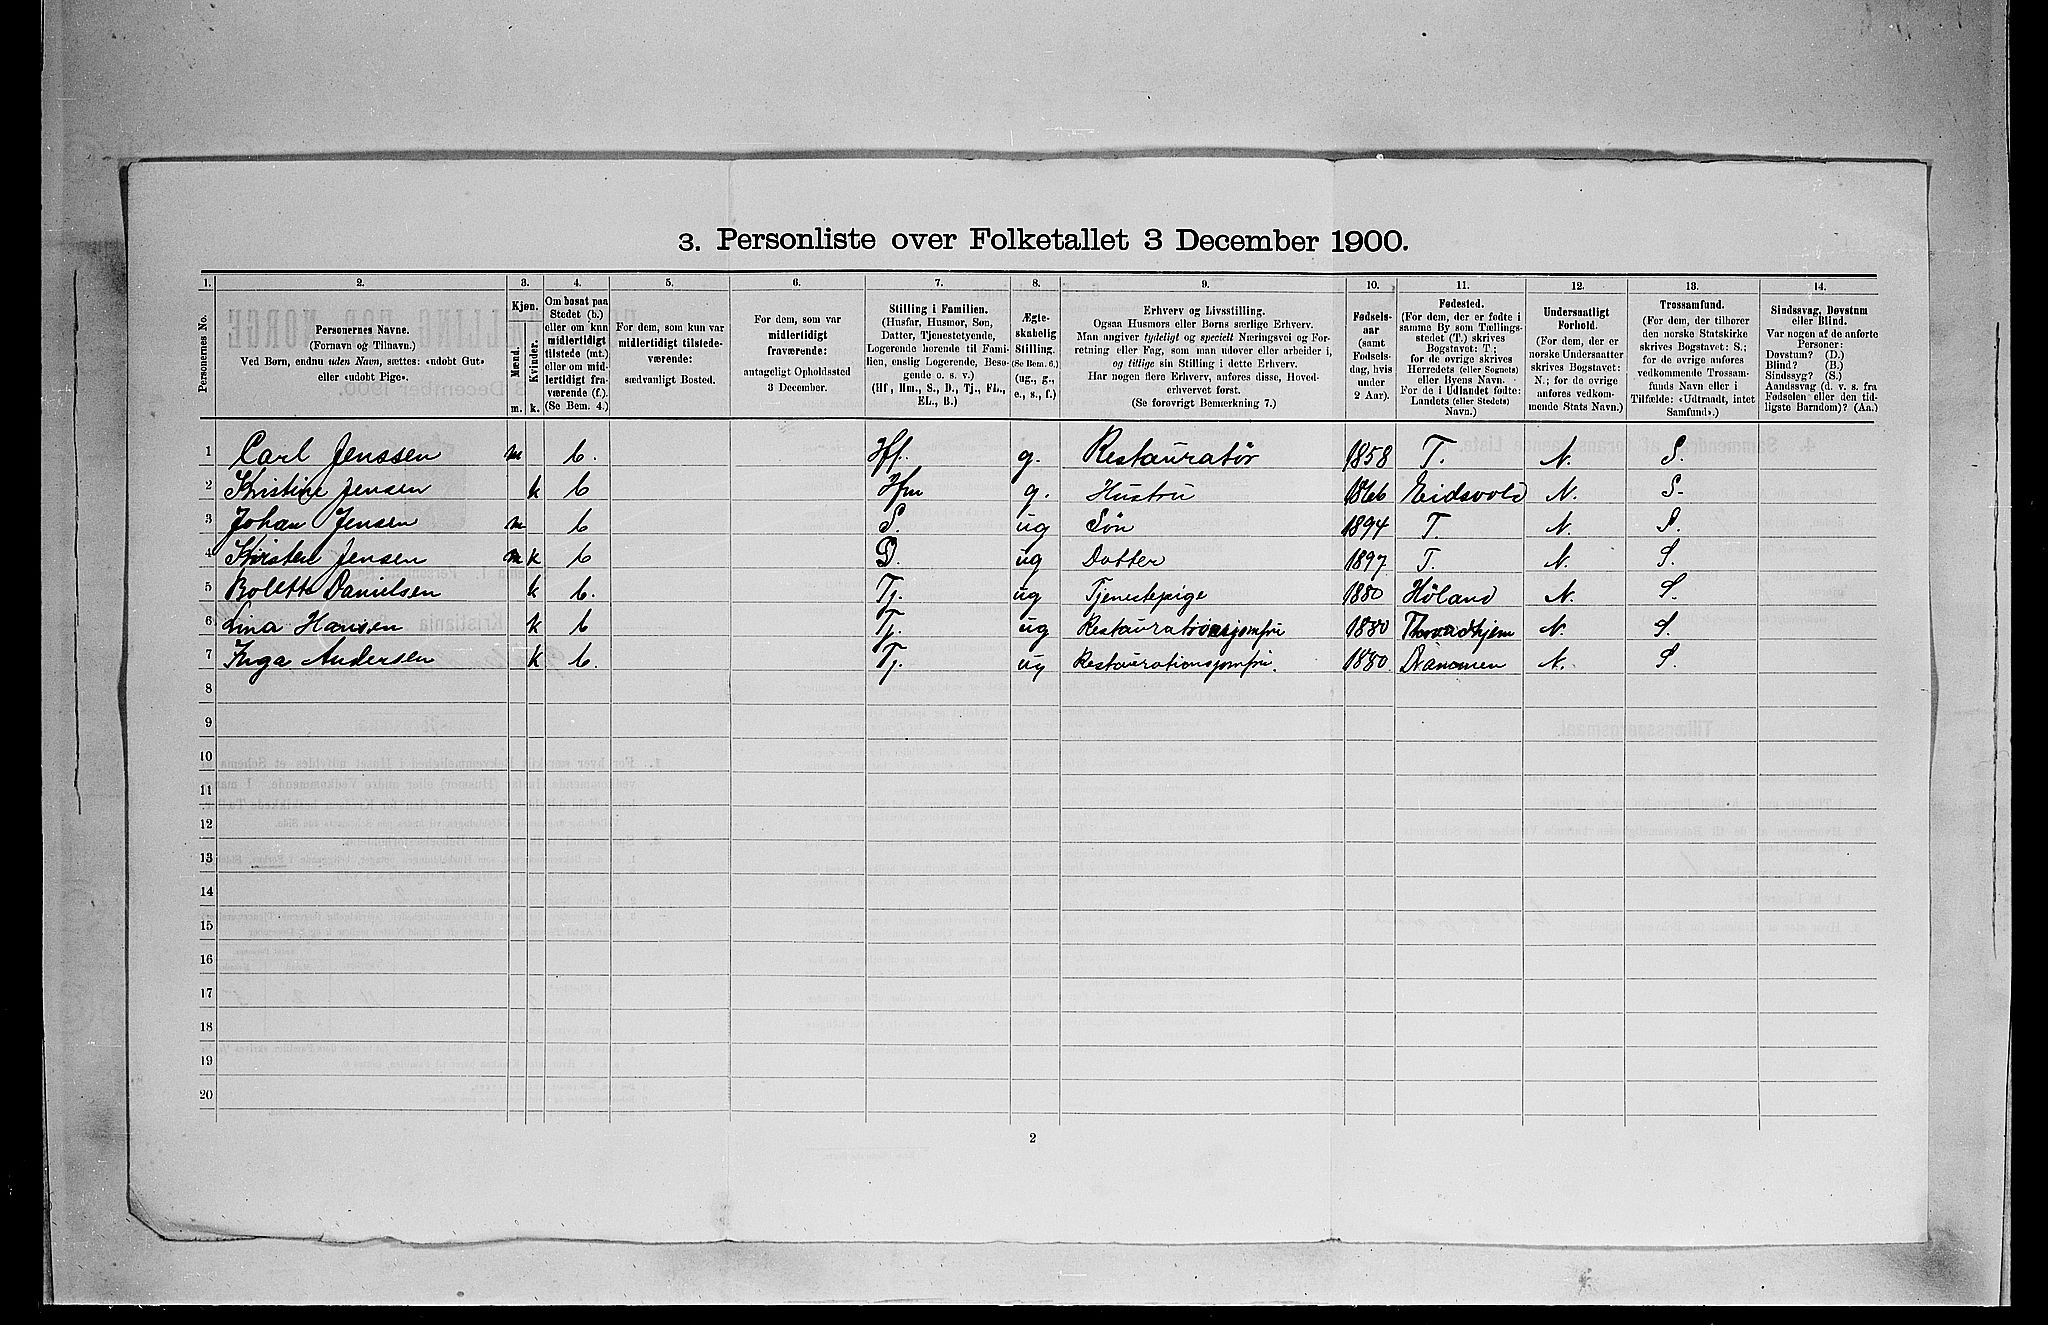 3. Personliste over Folketallet 3 December 1900.
1. 2. 3. 4. 5. 6. 7. 8. 9. 10. 11. 12. 13. 14.
Personernes No.
Personernes Navne.
(Fornavn og Tilnavn.)
Ved Børn, endnu uden Navn, sættes: «udøbt Gut»
eller «udøbt Pige».
Kjøn.
Mænd.
Kvinder.
m. k.
Om bosat paa
Stedet (b.)
eller om kun
midlertidigt
tilstede (mt.)
eller om mid-
lertidigt fra-
værende (f.).
(Se Bem. 4.)
For dem, som kun var
midlertidigt tilstede-
værende:
sædvanligt Bosted.
For dem, som var
midlertidigt
fraværende:
antageligt Opholdssted
3 December.
Stilling i Familien.
(Husfar, Husmor, Søn,
Datter, Tjenestetyende,
Logerende hørende til Fami-
lien, enslig Logerende, Besø-
gende o. s. v.)
(Hf, Hm., S., D., Tj., FL.,
EL., B.)
Ægte-
skabelig
Stilling.
(Se Bem. 6.)
(ug., g.,
e., s., f.)
Erhverv og Livsstilling.
Ogsaa Husmors eller Børns særlige Erhverv.
Man angiver tydeligt og specielt Næringsvei og For-
retning eller Fag, som man udøver eller arbeider i,
og tillige sin Stilling i dette Erhverv.
Har nogen flere Erhverv, anføres disse, Hoved-
erhvervet først.
(Se forøvrigt Bemærkning 7.)
Fødsels-
aar
(samt
Fødsels-
dag, hvis
under
2 Aar).
Fødested.
(For dem, der er fødte i
samme By som Tællings-
stedet (T.) skrives
Bogstavet: T.;
for de øvrige skrives
Herredets (eller Sognets)
eller Byens Navn.
For de i Udlandet fødte:
Landets (eller Stedets)
Navn.)
Undersaatligt
Forhold.
(For dem, der er
norske Undersaatter
skrives Bogstavet:
N.; for de øvrige
anføres vedkom-
mende Stats Navn.)
Trossamfund.
(For dem, der tilhører
den norske Statskirke
skrives Bogstavet: S.;
for de øvrige anføres
vedkommende Trossam-
funds Navn eller i
Tilfælde: «Udtraadt, intet
Samfund».)
Sindssvag, Døvstum
eller Blind.
Var nogen af de anførte
Personer:
Døvstum? (D.)
Blind? (B.)
Sindssyg? (S.)
Aandssvag (d. v. s. fra
Fødselen eller den tid-
ligste Barndom)? (Aa.)
1 Carl Jenssen m b. Hf. g. Restauratør 1858 T. N. S.
2 Kristine Jensen k b Hm g. Hustru 1866 Eidsvold N. S.
3 Johan Jensen m b S. ug Søn 1894 T. N. S.
4 Kirsten Jensen m k b D. ug Datter 1897 T. N. S.
5 Bolette Danielsen k b. Tj. ug Tjenestepige 1880 Høland N. S.
6 Lina Hansen k b Tj. ug Restaurationsjomfru 1880 Throndhjem N. S.
7 Inga Andersen k b. Tj. ug Restaurationsjomfru. 1880 Drammen N. S.
8
9
10
11
12
13
14
15
16
17
18
19
20
2